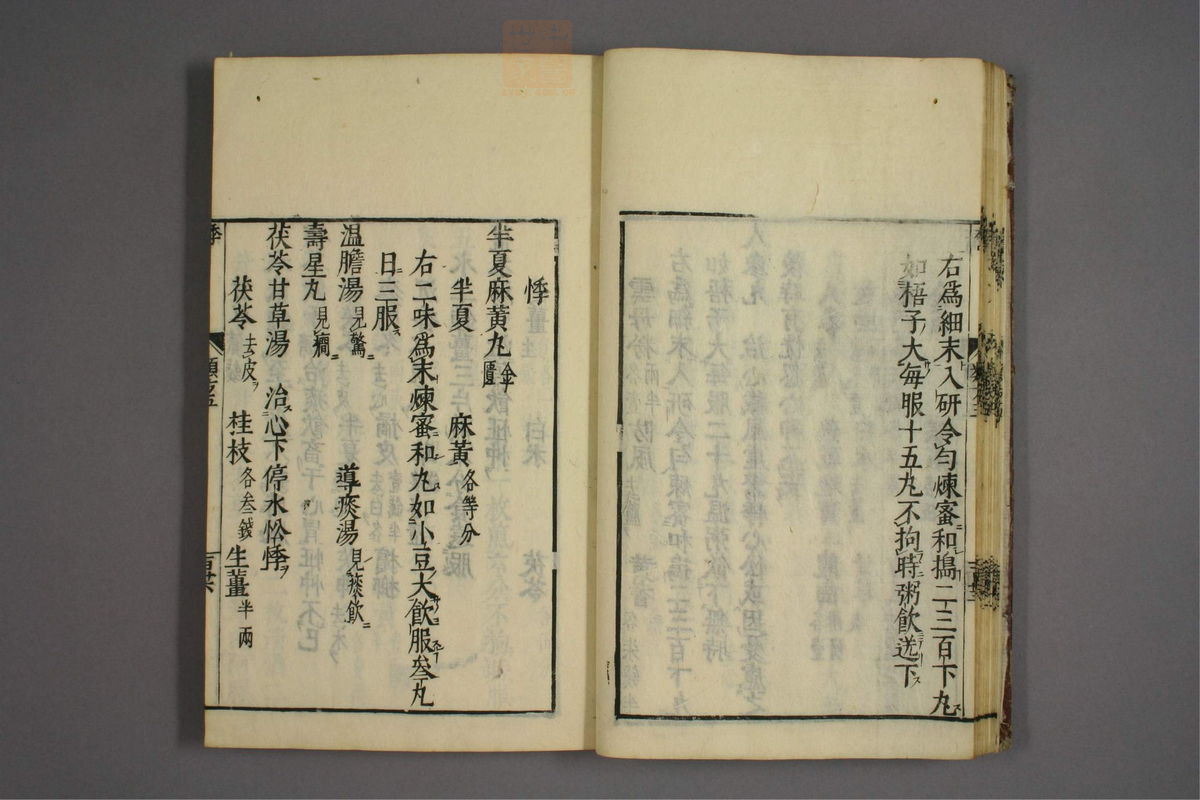 右爲細末入研令勻煉蜜和搗二三百下丸
如梧子大每服十五丸不拘時粥飲送下
悸
半夏麻黃丸金匱
半夏　麻黃各等分
右二味爲末煉蜜和丸如小豆大飲服叁丸
日三服
温膽湯見驚　導痰湯見痰飲
壽星丸見癎
茯苓甘草湯　治心下停水忪悸
茯苓去皮　桂枝各叁錢　生薑半兩